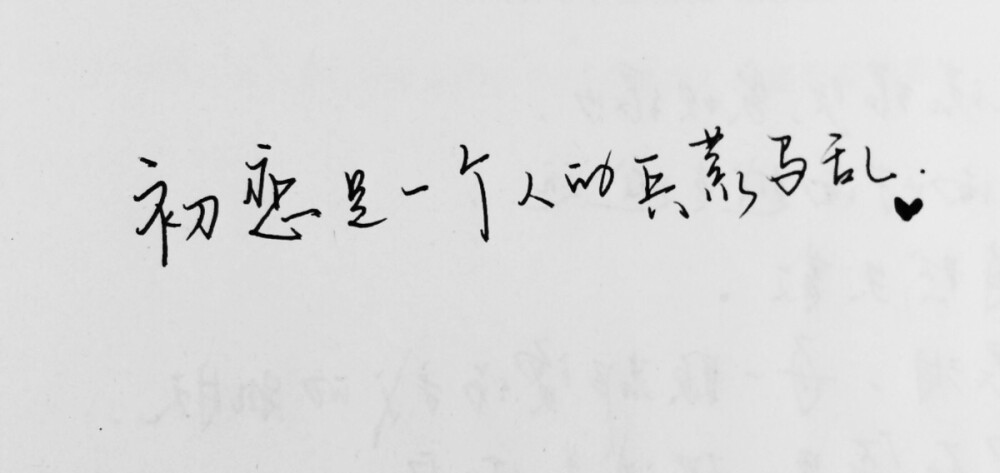 初恋是一个人的兵荒马乱.